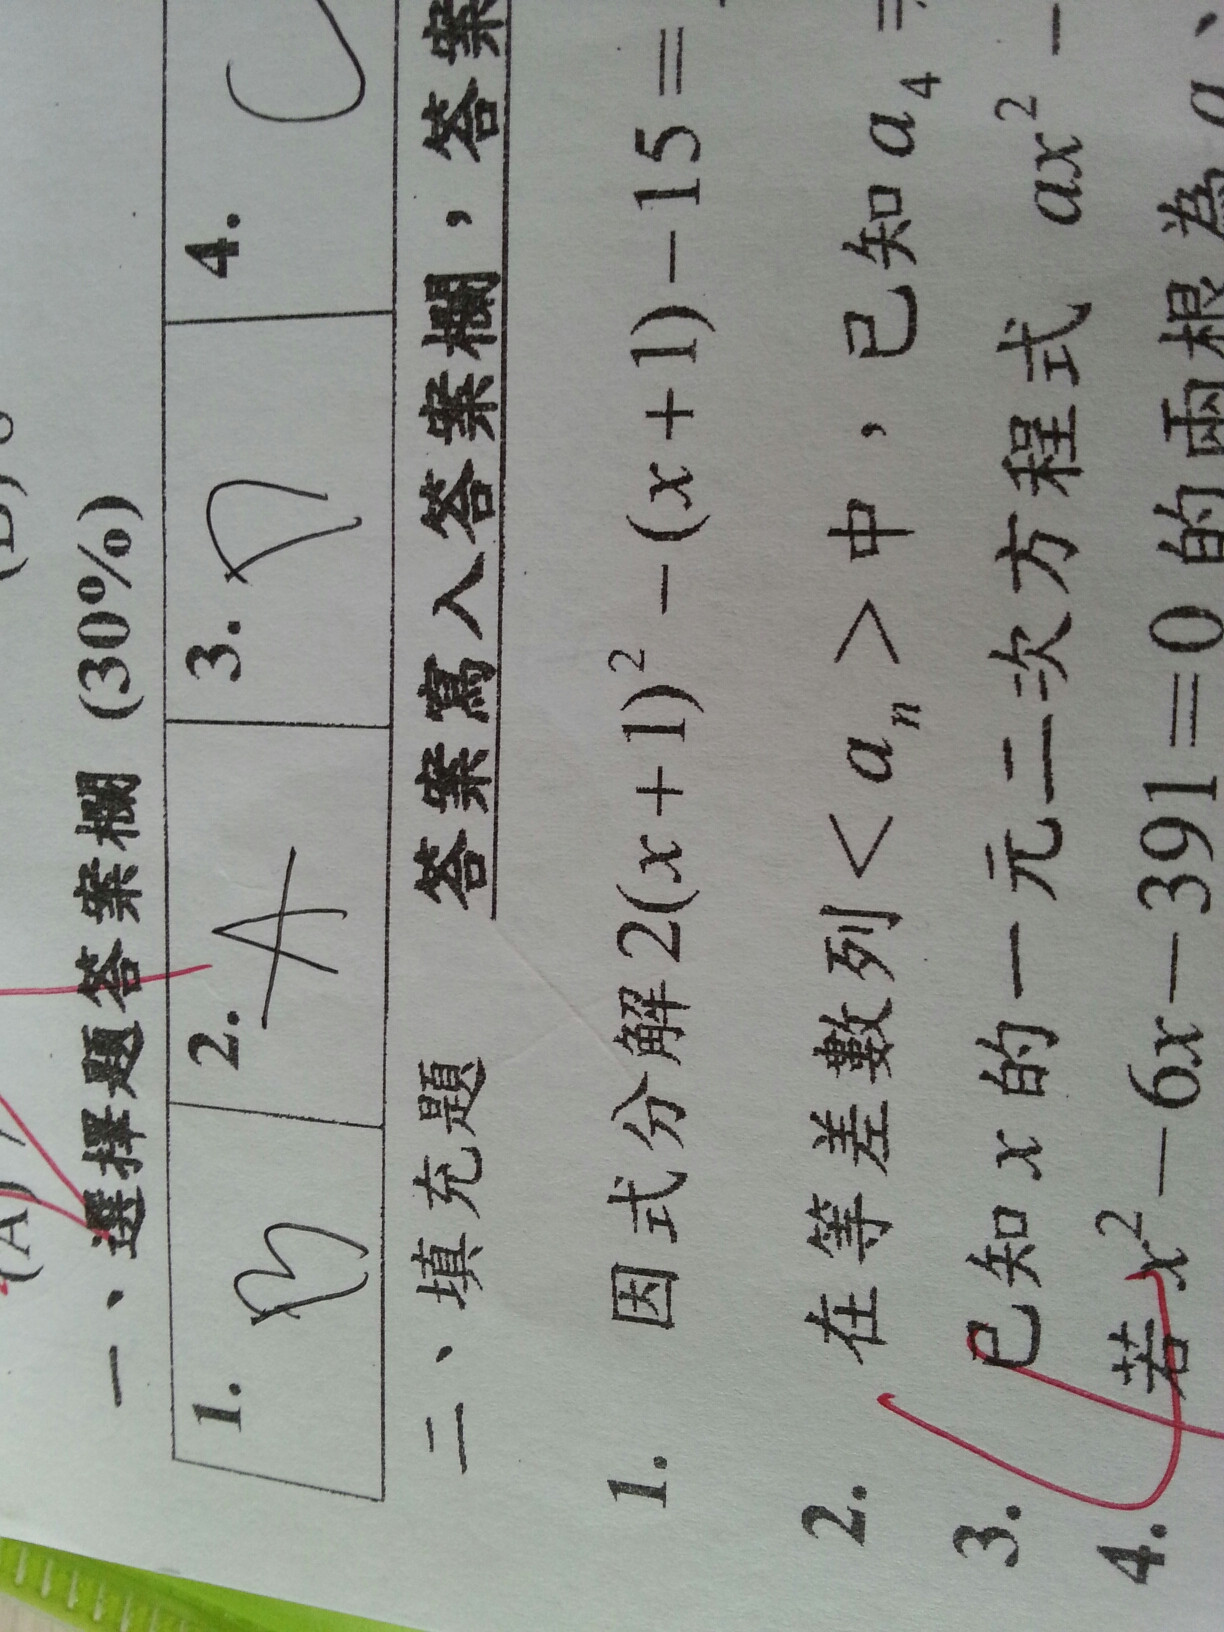 一、選擇題答案欄 (30%)
1. B 2. A 3. 4.
二、填充題 答案寫入答案欄，答案
1. 因式分解 2(x+1)² −(x+1)−15=
2. 在等差數列<aₙ>中，已知 a₄ =
3. 已知 x 的一元二次方程式 ax² −
4. 若 x² −6x−391=0 的兩根為 a、